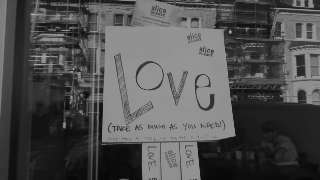 slice
slice
slice
Love
(TAKE AS MUCH AS YOU NEED!)
LOVE
slice
LOVE